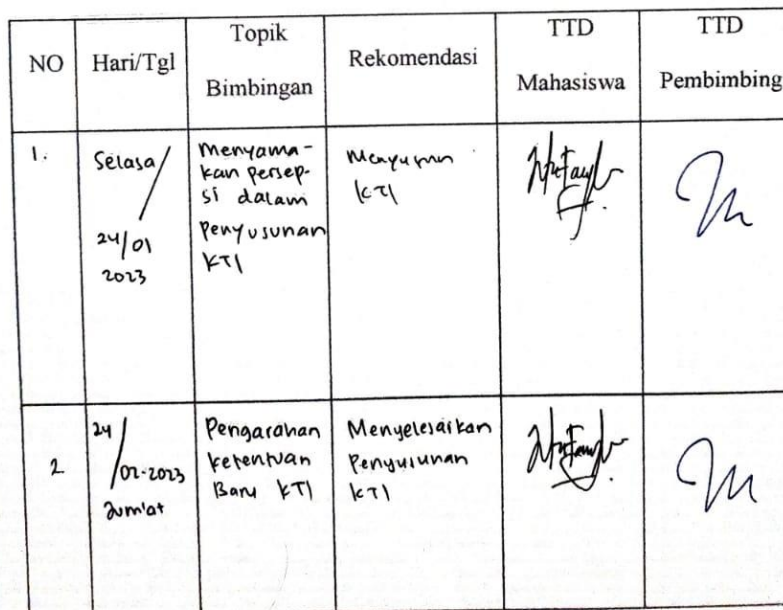 NO Hari/Tgl Topik Bimbingan Rekomendasi TTD Mahasiswa TTD Pembimbing
1.
Selasa/
24/01
2023
Menyama-
kan persep-
si dalam
Penyusunan
KTI
Menyusun
KTI
2
24
/02-2023
Jum'at
Pengarahan
Ketentuan
Baru KTI
Menyelesaikan
Penyusunan
KTI